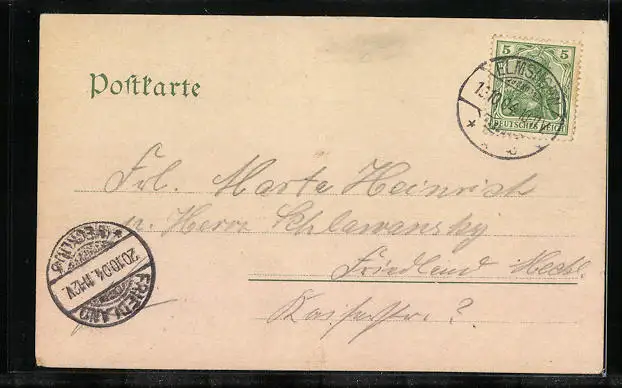 Postkarte
5 5
DEUTSCHES REICH
ELMSHORN
Frl. Marta Heinrich
Herrn Schlawansky
Friedland Meckl.
Kaiserstr. ?
FRIEDLAND
20.10.04. 11-12V.
(MECKLNB.)